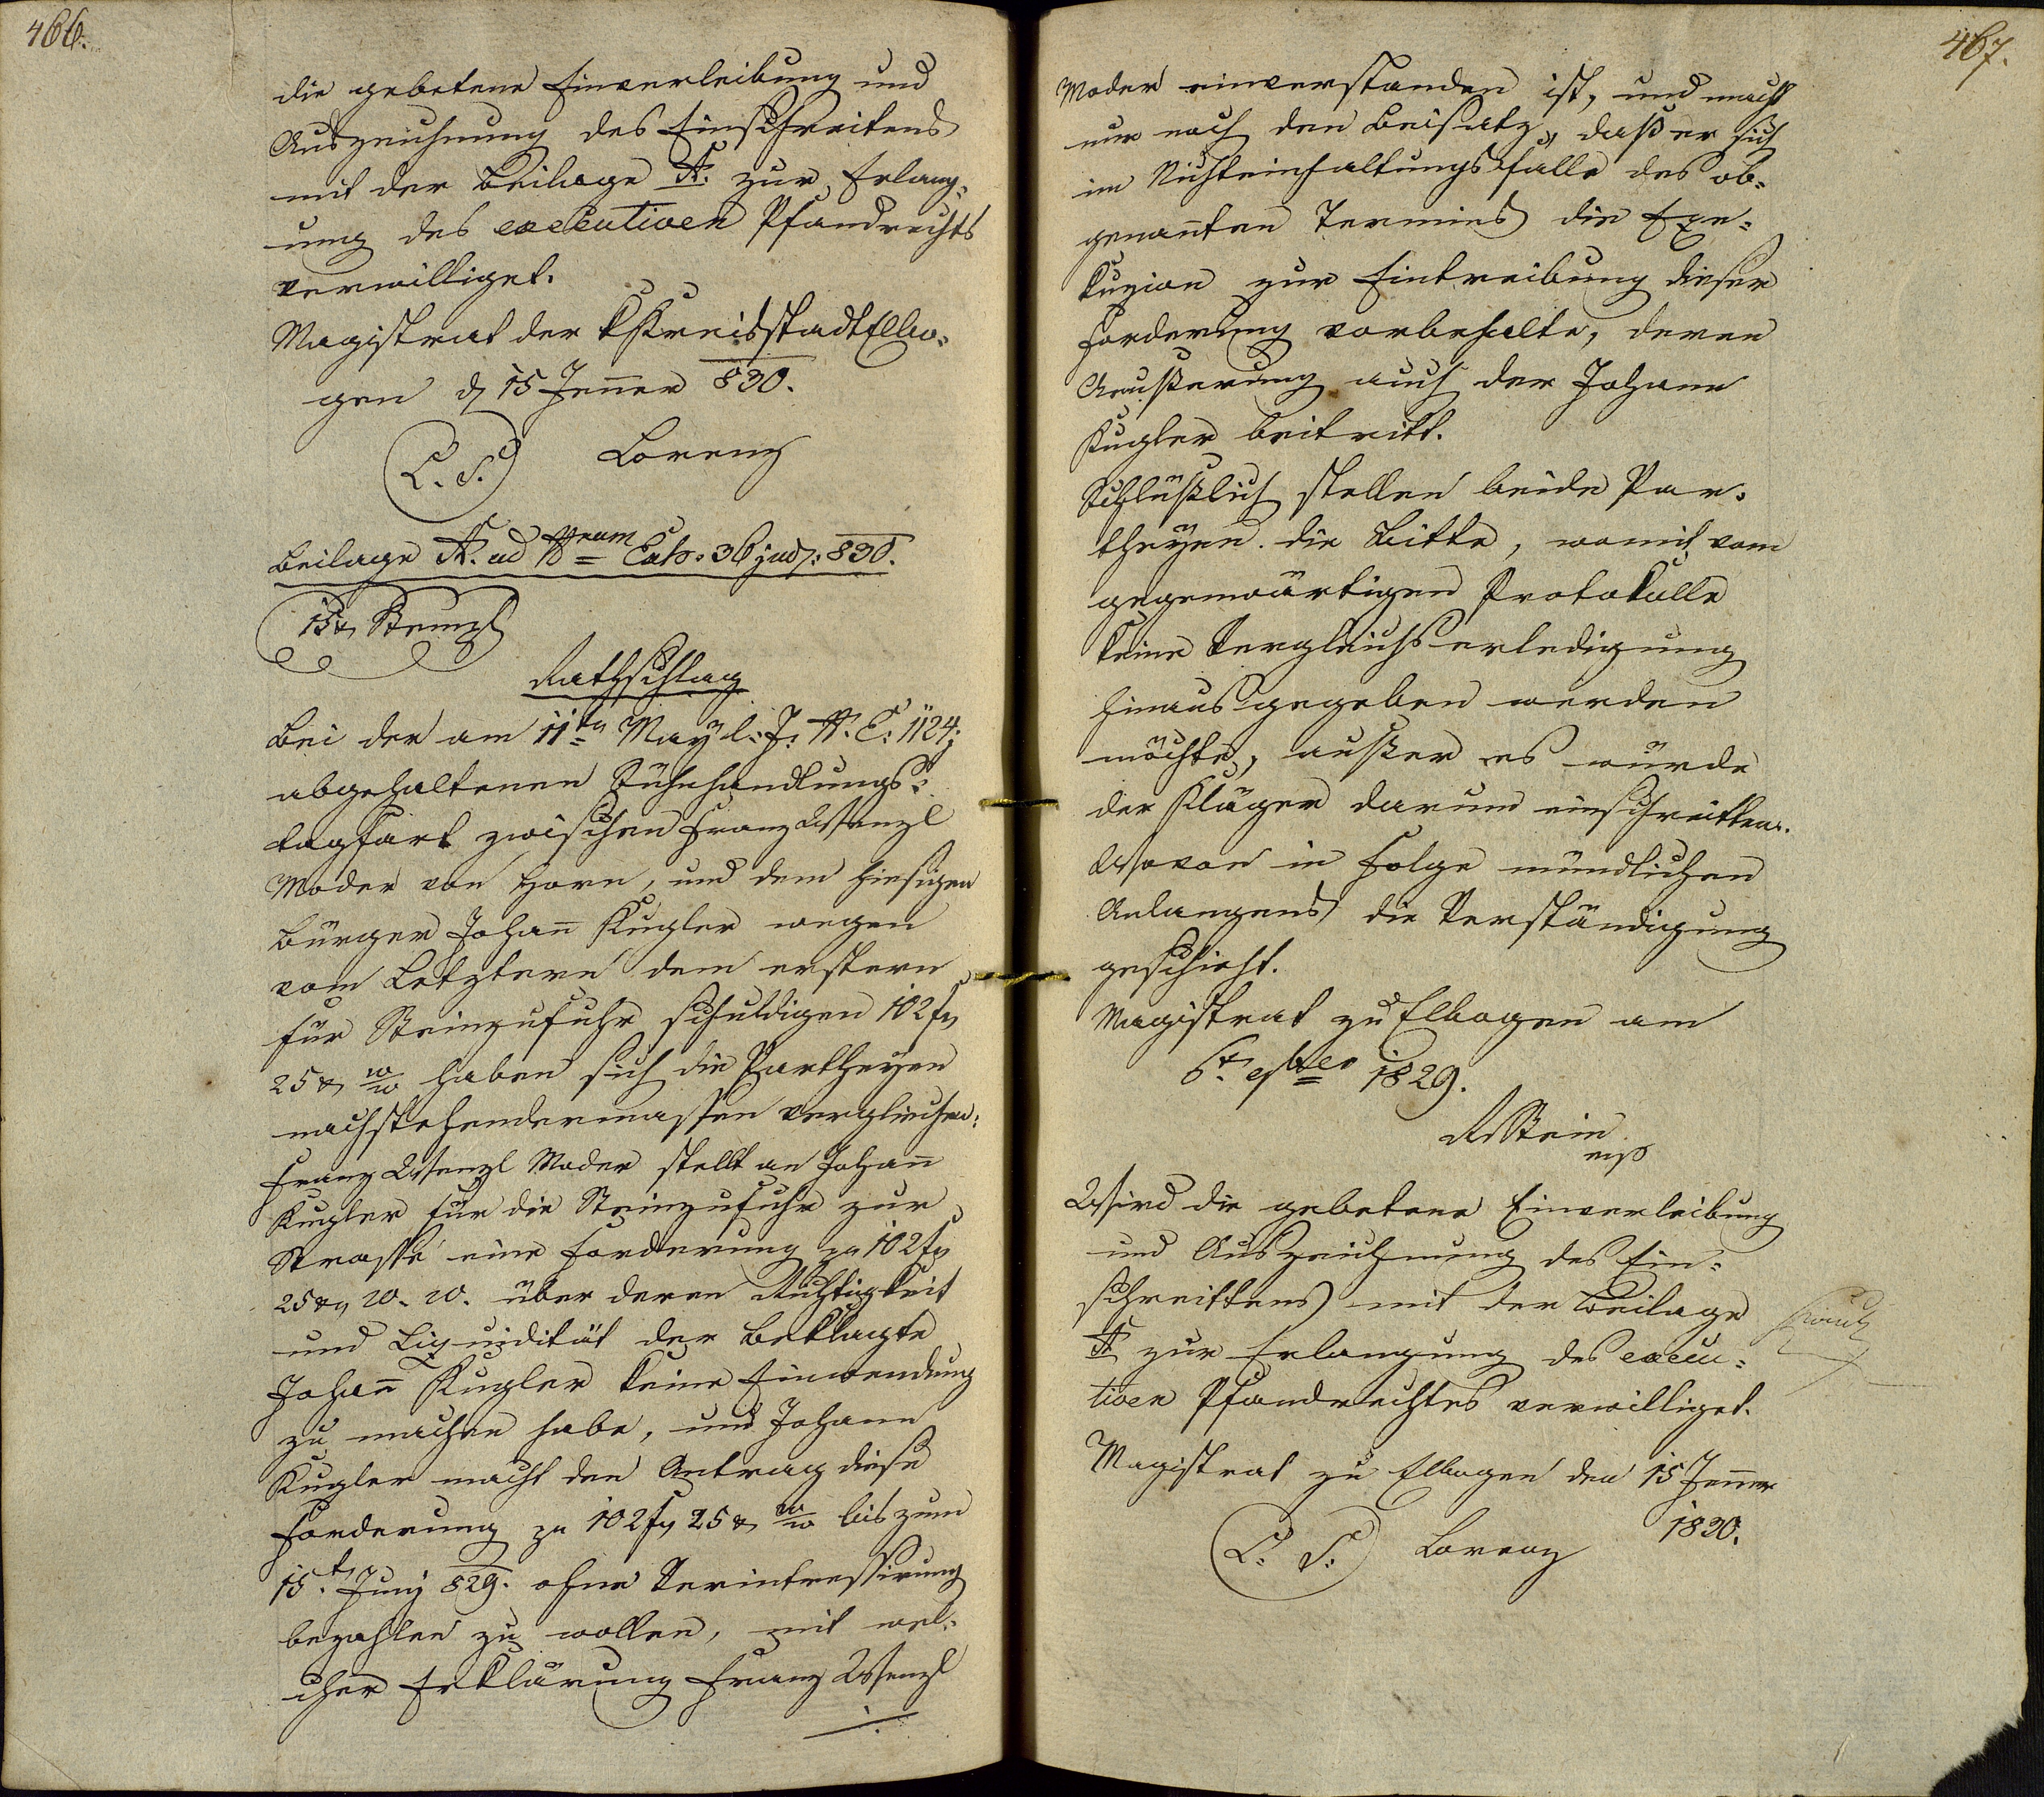 466.
die gebetene Einverleibung und
Auszeichnung des Einschreitens
mit der Beilage A. zur Erlang-
ung des executiven Pfandrechts
verwilliget.
Magistrat der KKreisstadt Elbo-
gen d 15 Jenner 830.
L. S. Lorenz
Beilage A. ad Nrum Exh. 36 jud: 830.
15 x Stempl
Rathschlag
Bei der am 11ten May l: J: N. E: 1124j
abgehaltenen Sühnhandlungs-
tagfart zwischen Franz Wenzl
Moder von Horn, und dem hiesigen
Bürger Johan̄ Kugler wegen
vom Letztern dem erstern
für Steinzufuhr schuldigen 102 f
25 x W/W haben sich die Partheyen
nachstehendermassen verglichen:
Franz Wenzl Moder stellt an Johan̄
Kugler für die Steinzufuhr zur
Strasse eine Forderung zu 102 f
25 x W. W. über deren Richtigkeit
und Liquidität der Beklagte
Johan̄ Kugler keine Einwendung
zu machen habe, und Johann
Kugler macht den Antrag diese
Forderung zu 102 f 25 x W/W bis zum
15.t Juny 829. ohne Verintressirung
bezahlen zu wollen, mit wel-
cher Erklärung Franz Wenzl
./.
467.
Moder einverstanden ist, und macht
nur noch den Beisatz, daß er sich
im Nichteinhaltungsfalle des ob-
genan̄ten Termins die Exe-
kuzion zur Eintreibung dieser
Forderung vorbehalte, deren
Aeußerung auch der Johann
Kugler beitritt.
Schlüßlich stellen beide Par-
theyen die Bitte, womit vom
gegenwärtigen Protokolle
keine Vergleichserledigung
hinausgegeben werden
möchte, außer es würde
der Kläger darum einschreitten.
Wovon in Folge mündlichen
Anlangens die Verständigung
geschieht.
Magistrat zu Elbogen am
6t. 1829.
mp
Wird die gebetene Einverleibung
und Auszeichnung des Ein-
schreittens mit der Beilage
A zur Erlangung des execu-
tiven Pfandrechtes verwilliget.
Magistrat zu Elbogen den 15 Jenner
1830.
L. S. Lorenz